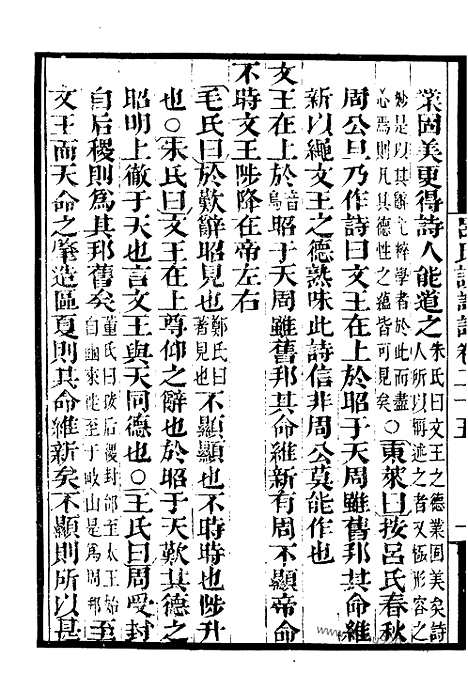 業固美更得詩人能道之朱氏曰文王之德業固美矣詩人所以稱述之者又極形容之
妙是以其辭粹學者於此而盡心焉則凡其德性之蘊皆可見矣○東萊曰按呂氏春秋
周公旦乃作詩曰文王在上於昭于天周雖舊邦其命維
新以繩文王之德熟味此詩信非周公莫能作也
文王在上於音烏昭于天周雖舊邦其命維新有周不顯帝命
不時文王陟降在帝左右
毛氏曰於歎辭昭見也鄭氏曰著見也不顯顯也不時時也陟升
也○朱氏曰文王在上尊仰之辭也於昭于天歎其德之
昭明上徹于天也言文王與天同德也○王氏曰周受封
自后稷則為其邦舊矣董氏曰唆后稷封邰至太王始自豳來徙至于岐山是為周邦至
文王而天命之肇造區夏則其命維新矣不顯則所以甚
呂氏家塾讀詩記卷二十五